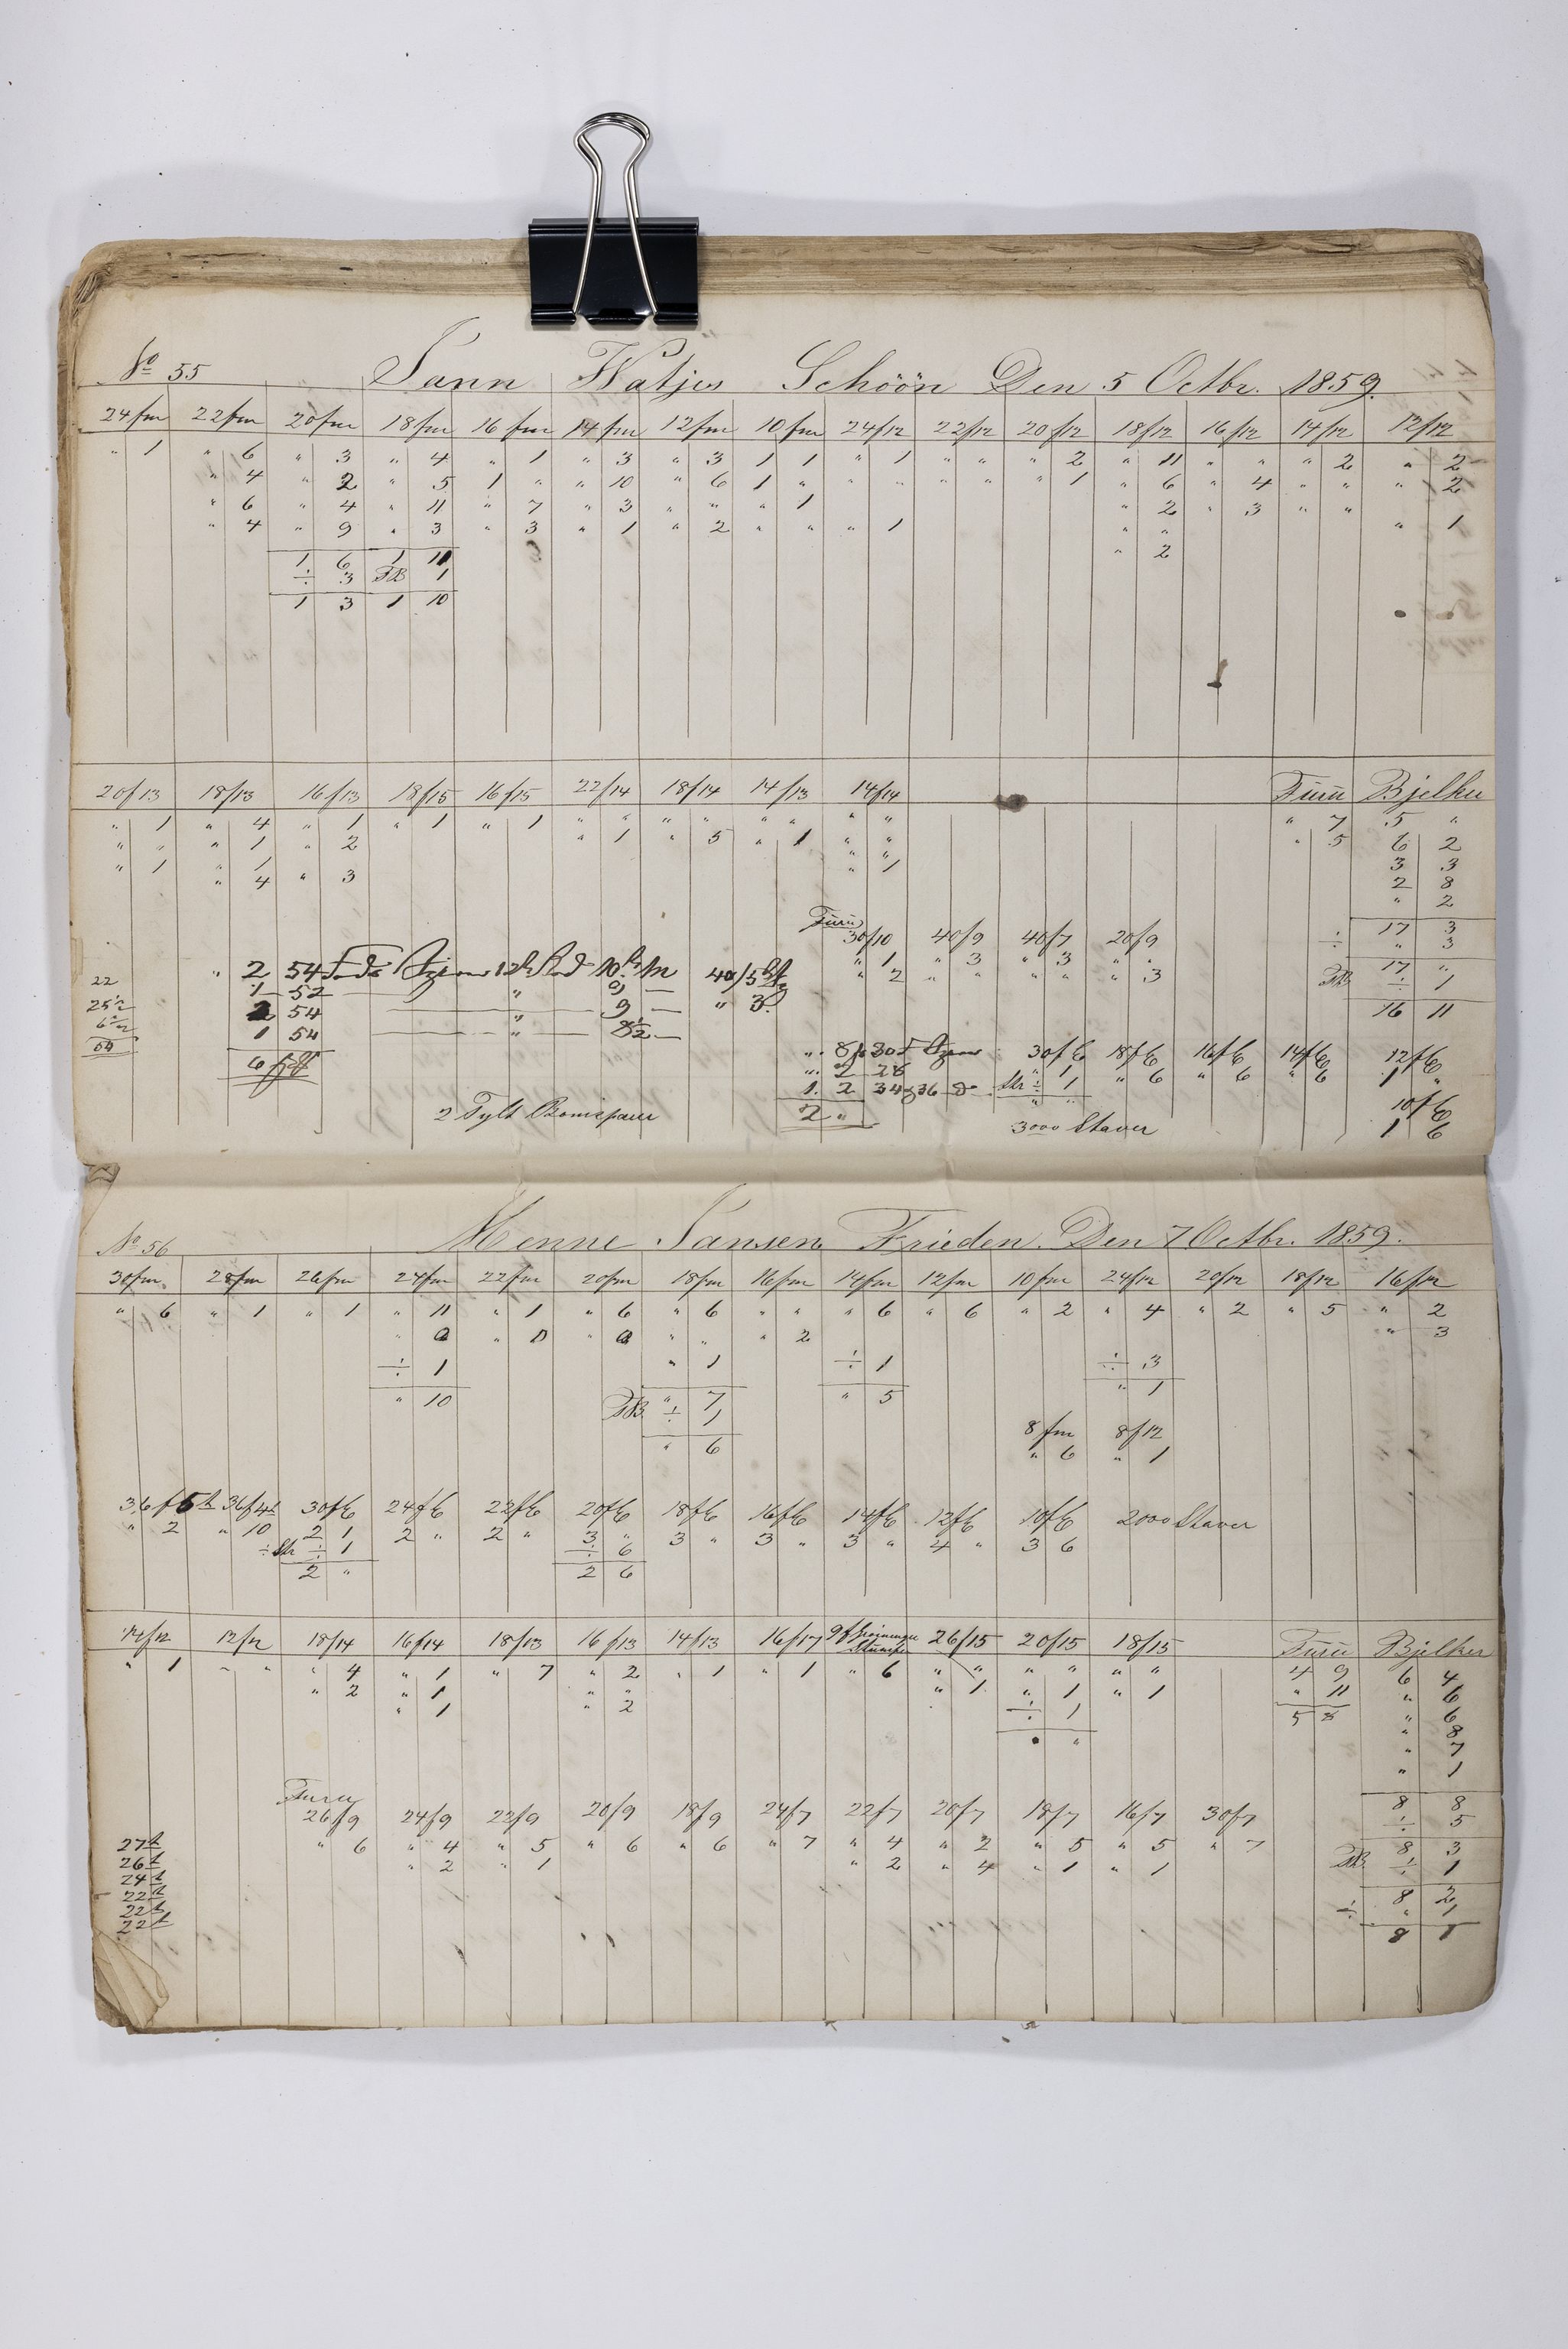 No 55 Jann Watjes Schöön Den 5 Octbr. 1859.
24fm 22fm 20fm 18fm 16fm 14fm 12fm 10fm 24/12 22/12 20/12 18/12 16/12 14/12 12/12
" 1 " 6 " 3 " 4 " 1 " 3 " 3 1 1 " 1 " " " 2 " 11 " " " 2 " 2
" 4 " 2 " 5 1 " " 10 " 6 1 " " " " " " 1 " 6 " 4 " " " 2
" 6 " 4 " 11 " 7 " 3 " " " 1 " 2 " 3 " "
" 4 " 9 " 3 " 3 " 1 " 2 " " " 1 " " " 1
1 6 1 11 " 2
÷ 3 1
1 3 1 10
20/13 18/13 16/13 18/15 16/15 22/14 18/14 14/13 14/14 Furu Bjelker
" 1 " 4 " 1 " 1 " 1 " " " " " " " " " 7 5 "
" " " 1 " 2 " 1 " 5 " 1 " " " 5 6 2
" 1 " 1 " " 3 3
" 4 " 3 " 1 2 8
" 2
Furu 17 3
30/10 40/9 40/7 20/9 ÷ " 3
" 1 " 3 " 3 " " 17 "
" 2 " " " " " 3 ÷ 1
16 11
22 " 2 54 10 40/5
1 52 " 9 " 3
2 54 " 9
1 54 " 8½
6
" 8 30 30f 18f 16f 14f 12f
" 2 28 " 1 " 6 " 6 " 6 1 "
1. 2 34 36 ÷ 1 10f
2 " " " 1 6
2 Tylt 3000 Staver
No 56 Menne Jansen Frieden. Den 7 Octbr. 1859.
30fm 28fm 26fm 24fm 22fm 20fm 18fm 16fm 14fm 12fm 10fm 24/12 20/12 18/12 16/12
" 6 " 1 " 1 " 11 " 1 " 6 " 6 " " " 6 " 6 " 2 " 4 " 2 " 5 " 2
" " " " " " 2 " 3
÷ 1 " 1 ÷ 1 ÷ 3
" 10 " 7 " 5 " 1
÷ 1
" 6
8fm 8/12
" 6 " 1
36f 36f 30f 24f 22f 20f 18f 16f 14f 12f 10f 2000 Staver
" 2 " 10 2 1 2 " 2 " 3 " 3 " 3 " 3 " 4 " 3 6
÷ 1 ÷ 6
2 " 2 6
14/12 12/12 18/14 16/14 18/13 16/13 14/13 16/17 26/15 20/15 18/15 Furu Bjelker
" 1 " " " 4 " 1 " 7 " 2 " 1 " 1 " 6 " " " " " " 4 9 6 4
" 2 " 1 " " " 1 " 1 " 1 " 11 " 6
" 1 " 2 ÷ 1 5 8 " 6
" " " 8
" 7
" 1
Furu 8 8
26/9 24/9 22/9 20/9 18/9 24/7 22/7 20/7 18/7 16/7 30/7 ÷ 5
27 " 6 " 4 " 5 " 6 " 6 " 7 " 4 " 2 " 5 " 5 " 7 8 3
26 " 2 " 1 " 2 " 4 " 1 " 1 ÷ 1
24
22 8 2
22 ÷ " 1
22 8 1